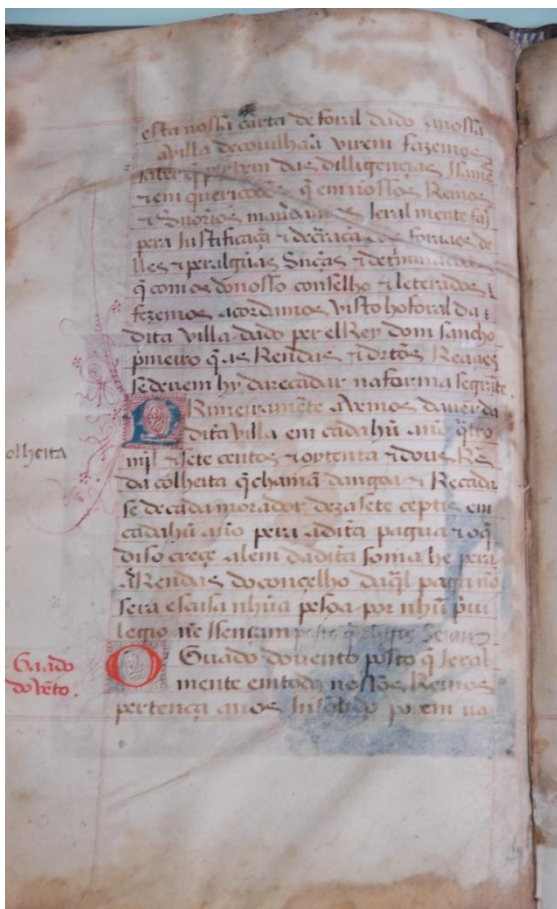 esta nossa carta de foral dado anossa
avilla decouilhaã virem fazemos
saber q̃ per bem das dilligencias Isamẽ
τ em quericoões q̃ em nossos Reinos
τ Snorios mandamos Jeral mente faz
pera Justificaçã τ decraraçã dos foraees de
lles τ per algũas Snças τ detriminações
q̃ com os do nosso conselho τ leterados
fezemos acordamos visto ho foral da
dita villa dado per elRey dom sancho
pimeiro q̃ as Rendas τ drtos Reaaes
se deuem hy darecadar na forma seguite.
PRimeiramẽte avemos daver da
dita villa em cada hũ año q̃tro
mil τ sete centos τ oytenta τ dous Rs
olheita
da colheita q̃ chamã dangoa τ Recada
se de cada morador deza sete ceptis em
cada hũ año pera a dita pagua τ o q̃
diso creçe alem da dita soma he pera
as Rendas do conçelho da q̃l paga nõ
sera escusa nhũa pesoa por nhũ priui
legio nẽ Ilensam posto q̃
Guado
do vẽto.
O Guado do vento posto q̃ Jeral
mente em todos nossos Reinos
pertença a nos In solido porem na